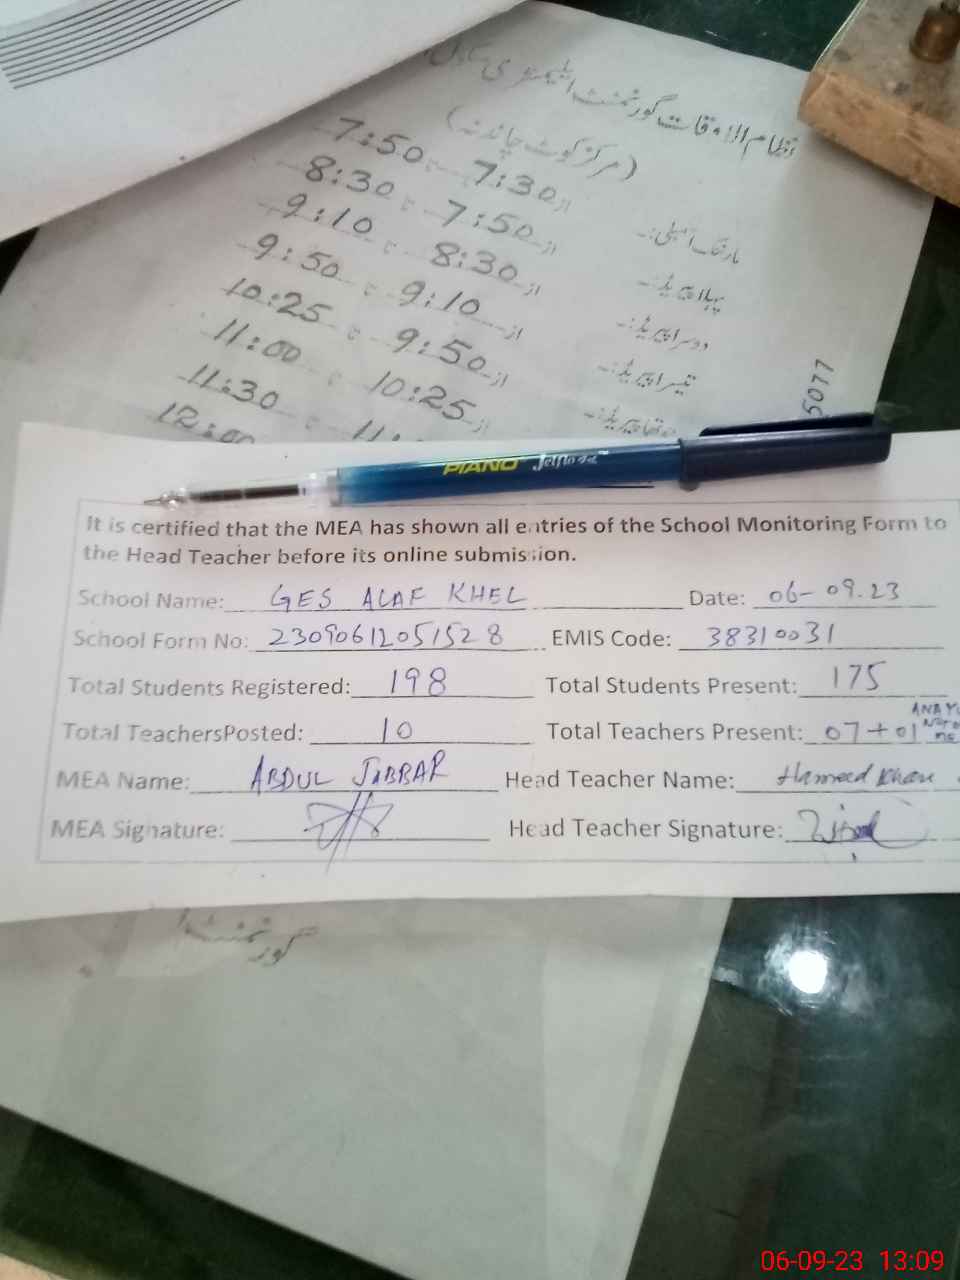 نظام الاوقات گورنمنٹ ایلیمنٹری سکول
(مرکز کوٹ چاندنہ)
مارننگ اسمبلی:۔ از 7:30 تا 7:50
پہلا پیریڈ:۔ از 7:50 تا 8:30
دوسرا پیریڈ:۔ از 8:30 تا 9:10
تیسرا پیریڈ:۔ از 9:10 تا 9:50
چوتھا پیریڈ:۔ از 9:50 تا 10:25
از 10:25 تا 11:00
11:30
12:00
5077
PIANO Jelflo
It is certified that the MEA has shown all entries of the School Monitoring Form to
the Head Teacher before its online submission.
School Name: GES ALAF KHEL Date: 06-09.23
School Form No: 23090612051528 EMIS Code: 38310031
Total Students Registered: 198 Total Students Present: 175
Total TeachersPosted: 10 Total Teachers Present: 07+01
MEA Name: ABDUL JABBAR Head Teacher Name: Hameed Khan
MEA Signature: Head Teacher Signature:
گورنمنٹ
06-09-23 13:09